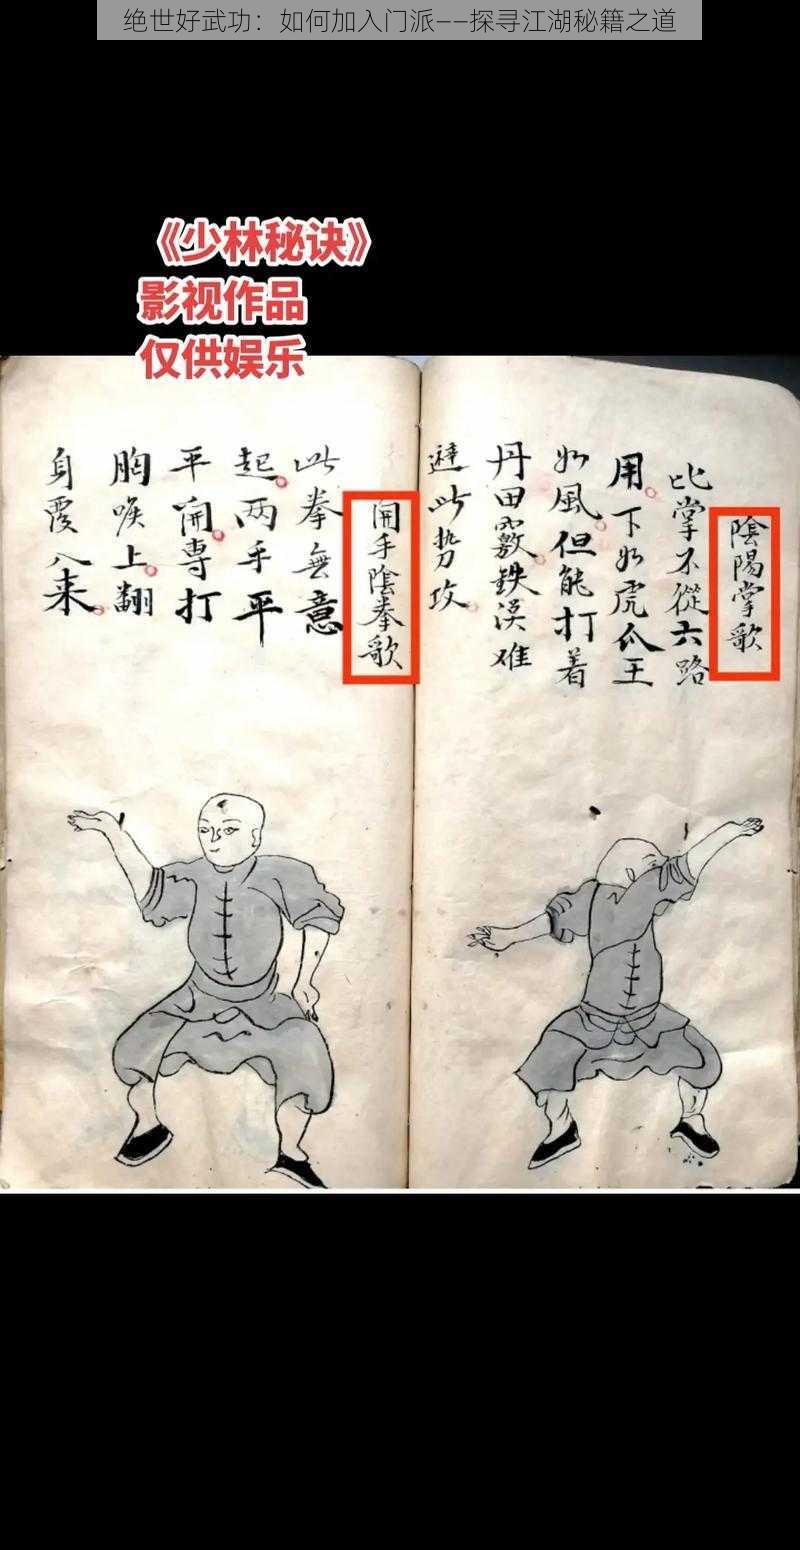 绝世好武功：如何加入门派——探寻江湖秘籍之道
《少林秘诀》
影视作品
仅供娱乐
陰陽掌歌
此掌不從六路
用下如虎爪王
如風但能打着
丹田竅鉄漢难
避此势攻
開手陰拳歌
此拳無意
起两手平
平開專打
胸喉上翻
身覆入来